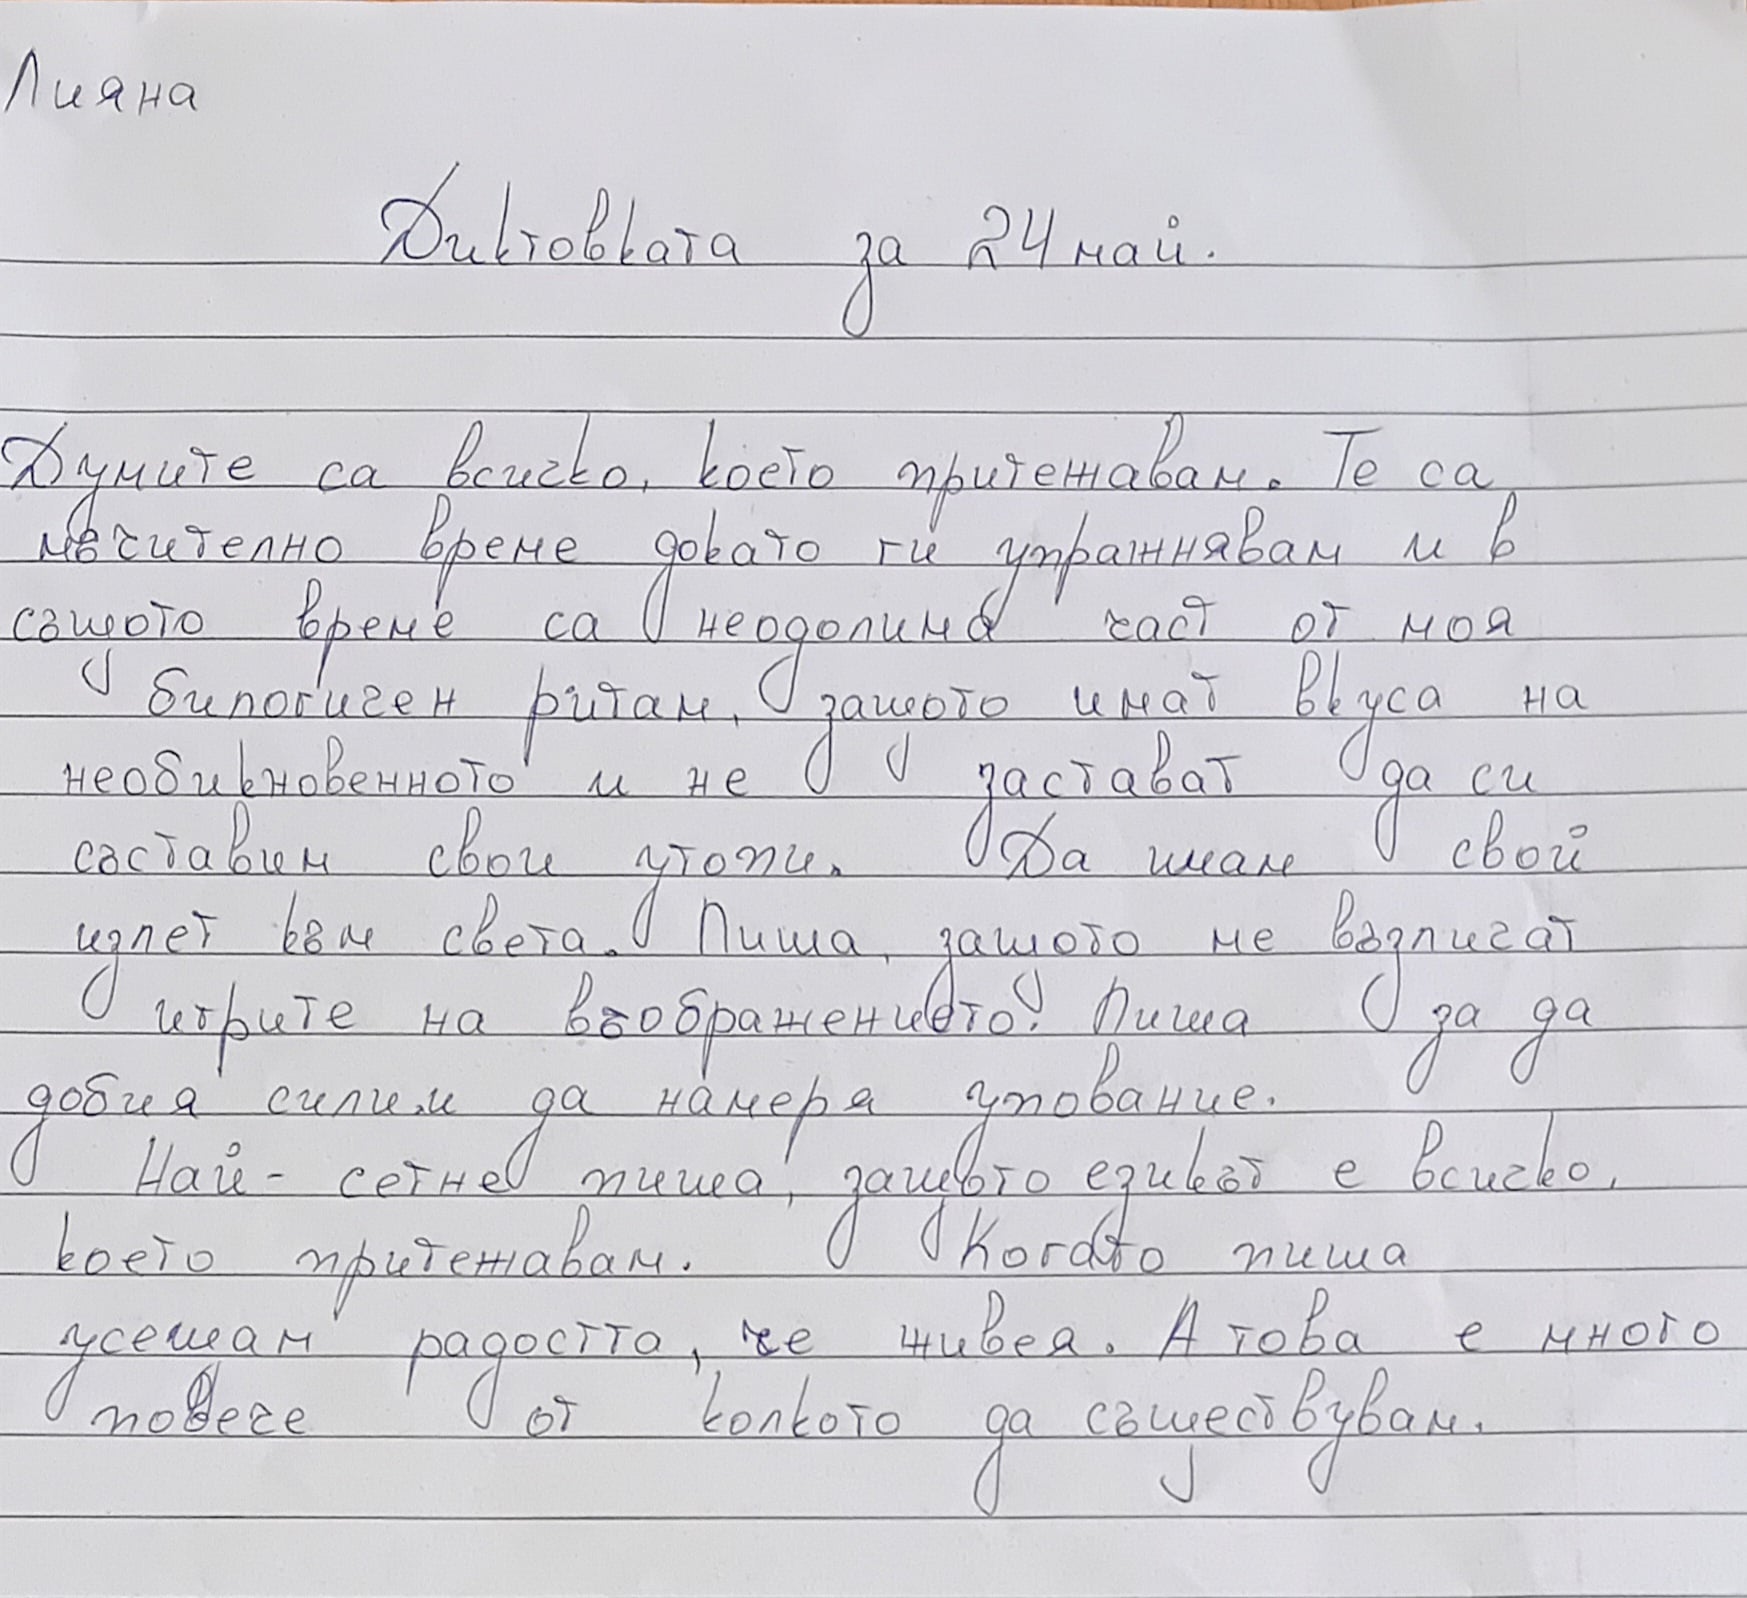 Лияна
Диктовката за 24 май.
Думите са всичко, което притежавам. Те са
мечително време докато ги упражнявам и в
същото време са неодолима част от моя
билогичен ритам, защото имат вкуса на
необикновенното и не застават да си
съставим свои утопи. Да имам свой
изпет към света. Пиша, защото ме възпичат
игрите на въображението. Пиша за да
добия сили.и да намеря упование.
Най - сетне пиша, защото езикът е всичко,
което притежавам. Когато пиша
усешам радостта, че живея. А това е много
повече от колкото да съществувам.